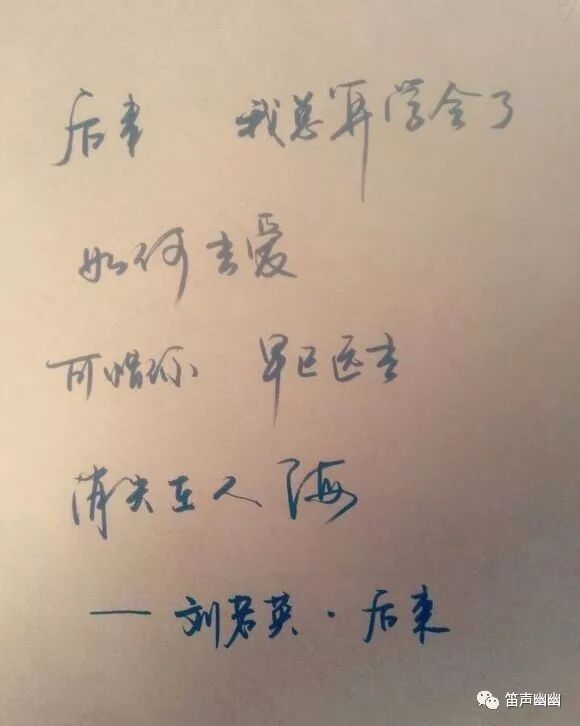 后来 我总算学会了
如何去爱
可惜你 早已远去
消失在人海
——刘若英·后来
笛声幽幽